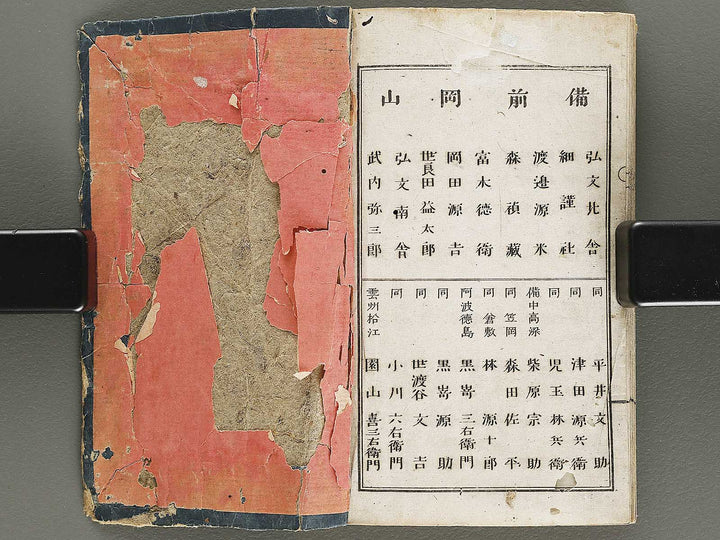 備前岡山
弘文北舎
細謹社
渡邉源米
森禎藏
富木德衛
岡田源吉
世良田益太郎
弘文南舎
武内弥三郎
同 平井文助
同 津田源兵衛
同 児玉林兵衛
備中高梁 柴原宗助
同笠岡 森田佐平
同倉敷 林源十郎
阿波德島 黒嵜三右衛門
同 黒嵜源助
同 世渡谷文吉
同 小川六右衛門
雲州松江 園山喜三右衛門